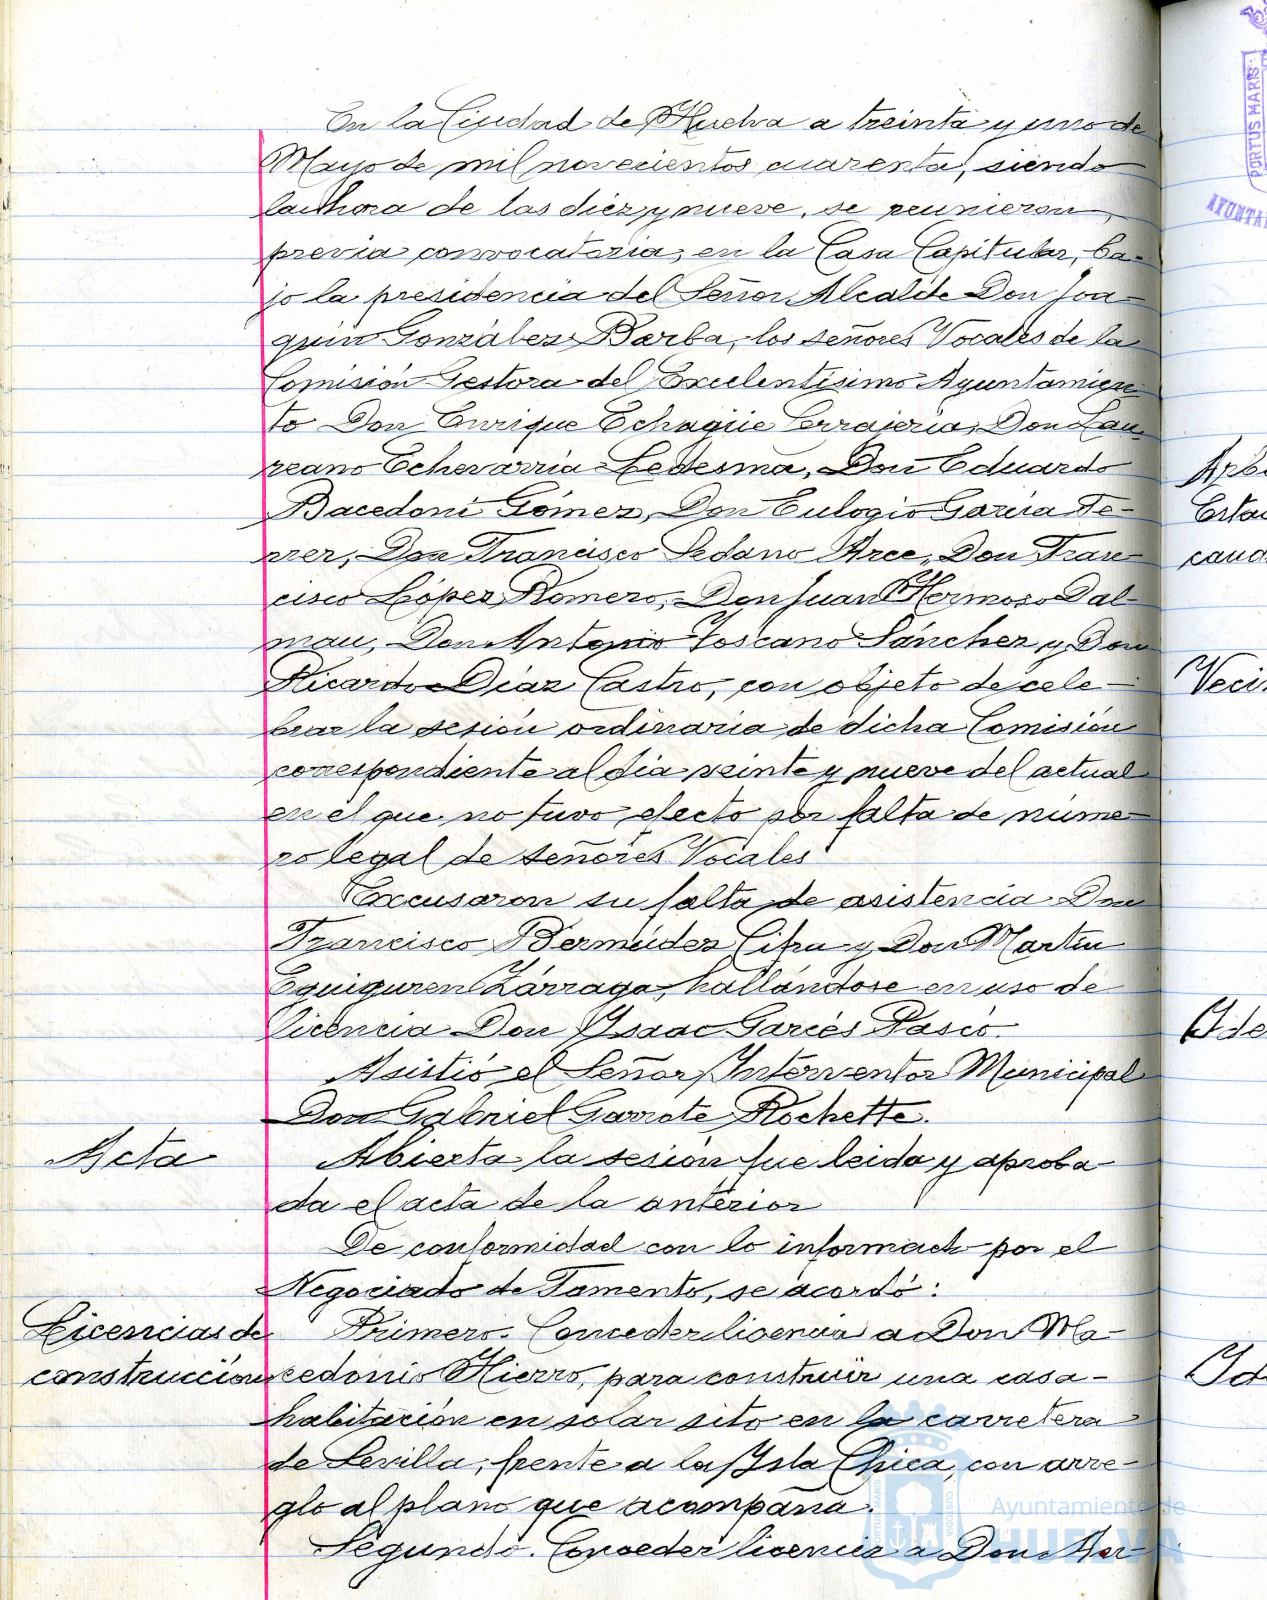 En la Ciudad de Huelva a treinta y uno de
Mayo de mil novecientos cuarenta, siendo
la hora de las diez y nueve, se reunieron,
previa convocatoria, en la Casa Capitular, ba-
jo la presidencia del Señor Alcalde Don Joa-
quín González Barba, los señores Vocales de la
Comisión Gestora del Excelentísimo Ayuntamien-
to Don Enrique Echagüe Cerrajería, Don Lau-
reano Echevarría Ledesma, Don Eduardo
Bacedoni Gómez, Don Eulogio García Fe-
rrer, Don Francisco Sedano Arce, Don Fran-
cisco López Romero, Don Juan Hermoso Dal-
mau, Don Antonio Toscano Sánchez y Don
Ricardo Díaz Castro, con objeto de cele-
brar la sesión ordinaria de dicha Comisión
correspondiente al día veinte y nueve del actual
en el que no tuvo efecto por falta de núme-
ro legal de señores Vocales
Excusaron su falta de asistencia Don
Francisco Bermúdez Cifra y Don Martín
Eguiguren Zárraga, hallándose en uso de
licencia Don Ysaac Garcés Pascó.
Asistió el Señor Interventor Municipal
Don Gabriel Garrote Rochette.
Acta
Abierta la sesión fue leida y aproba-
da el acta de la anterior
De conformidad con lo informado por el
Negociado de Fomento, se acordó:
Licencias de
construcción
Primero. Conceder licencia a Don Ma-
cedonio Hierro, para construir una casa-
habitación en solar sito en la carretera
de Sevilla, frente a la Ysla Chica, con arre-
glo al plano que acompaña.
Segundo. Conceder licencia a Don Mar-
PORTUS MARIS
AYUNTA
Arbi
Esta
cana
Veci
Yde
Yd
Ayuntamiento de
HUELVA